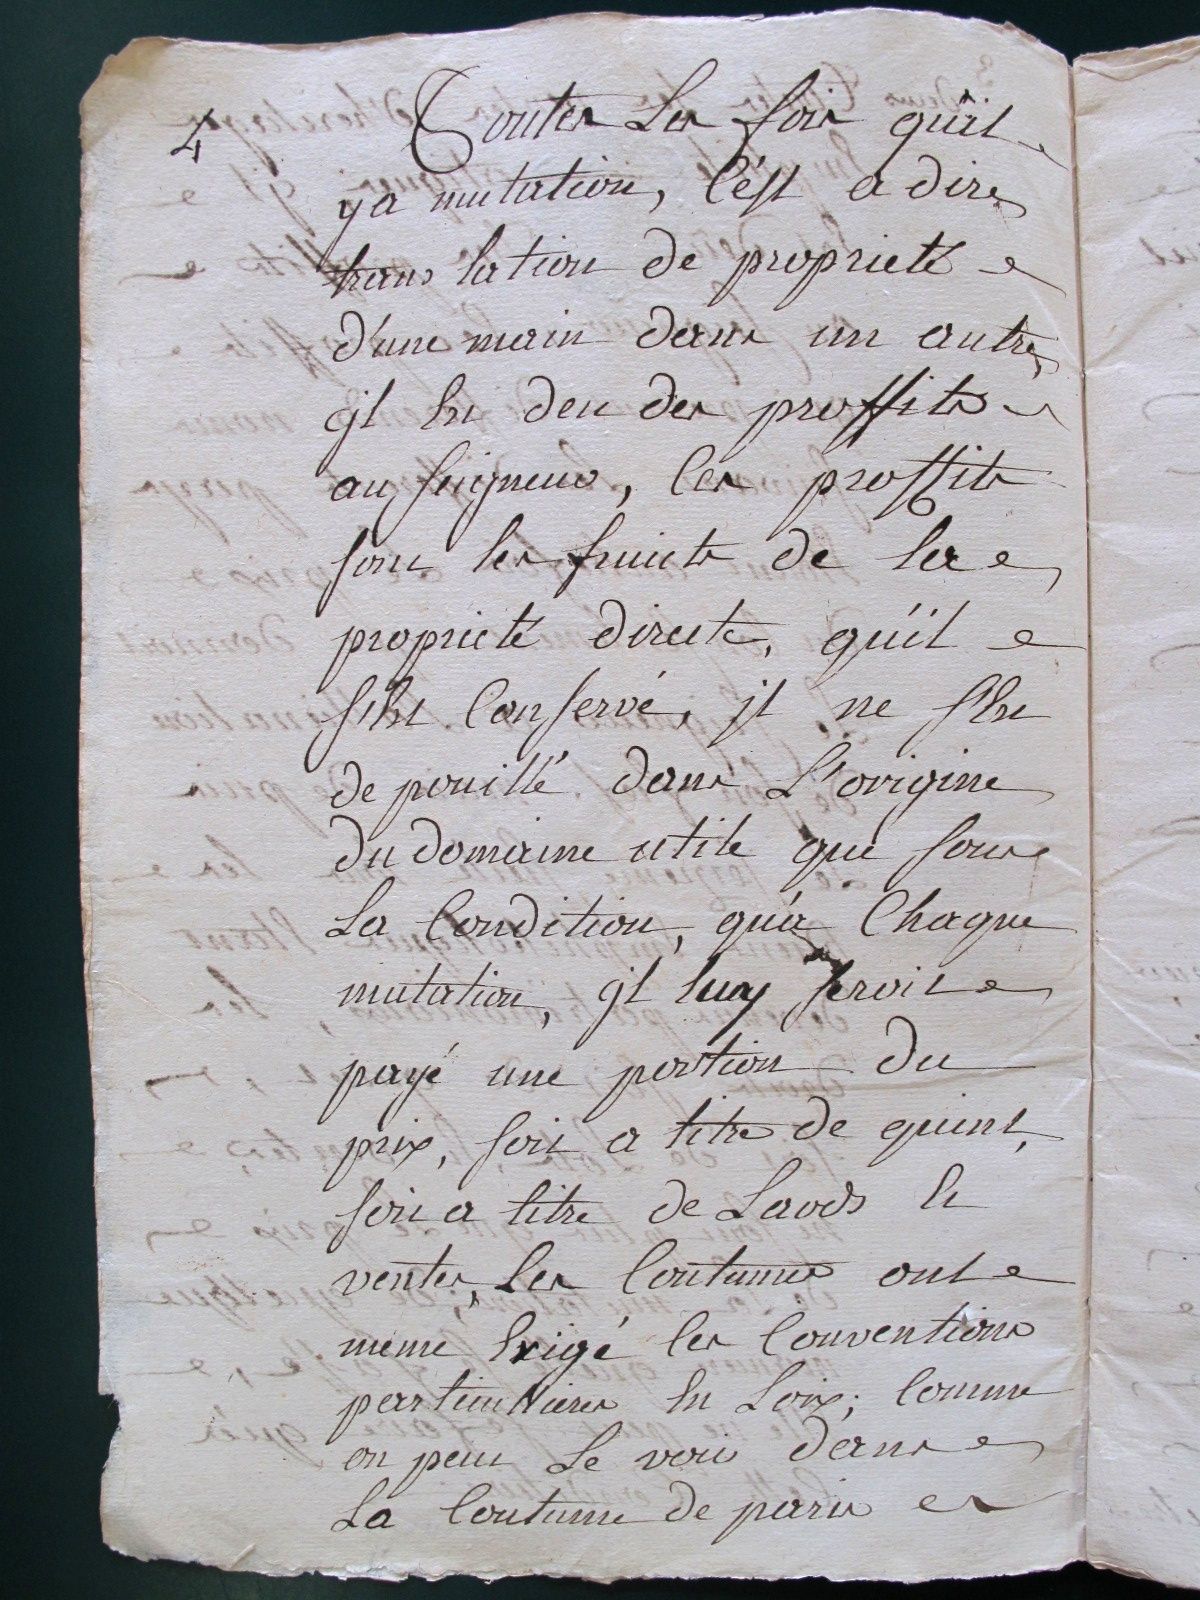 4
Toutes Les fois qu'il
y a mutation, C'est a dire
translation de proprieté
d'une main dans un autre,
jl Est deu des proffits
au seigneur, Ces proffits
sont les fruicts de la
proprieté directe, qu'il
s'est Conservé, jl ne s'est
depouillé dans L'origine
du domaine utile que sous
La Condition, qu'a Chaque
mutation, jl luy seroit
payé une portion du
prix, soit a titre de quint,
soit a titre de Laods Et
ventes, Les Coutumes ont
meme Erigé les Conventions
particullieres En Loix; Comme
on peut Le voir dans
La Coutume de paris